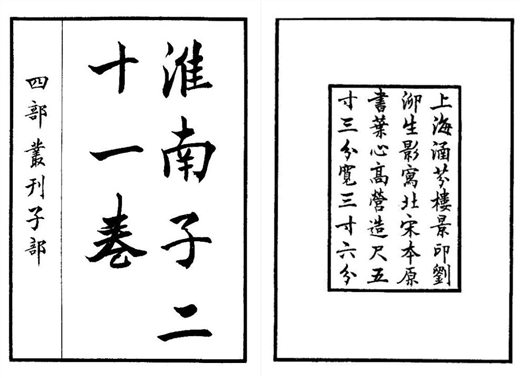 淮南子二
十一卷
四部叢刊子部
上海涵芬樓景印劉
泖生影寫北宋本原
書葉心高營造尺五
寸三分寬三寸六分